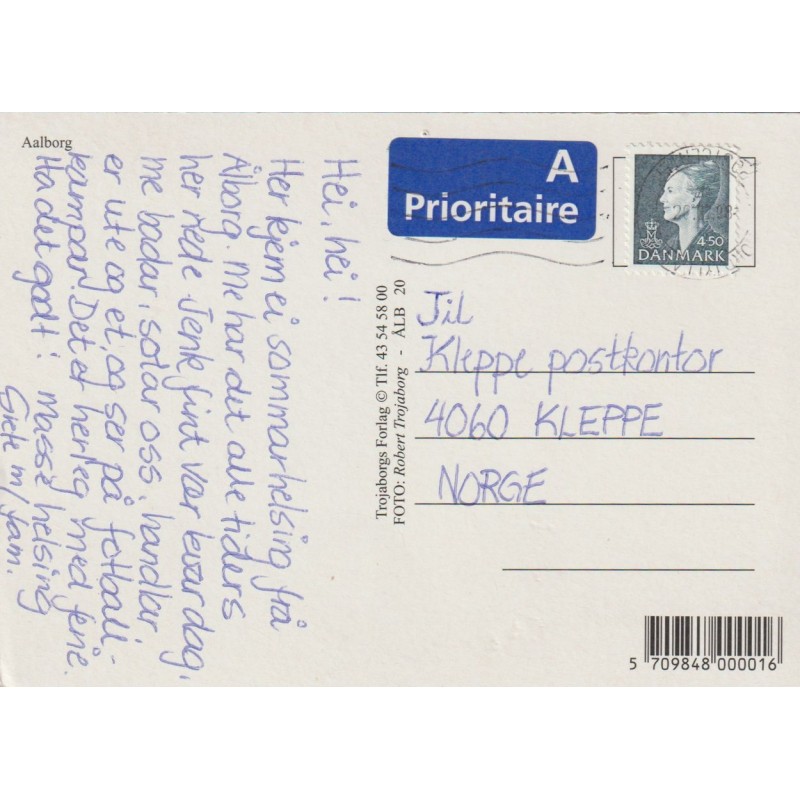 Aalborg
Hei, hei!
Her kjem ei sommarhelsing frå
Ålborg. Me har det alle tiders
her nede. Tenk fint vær kvar dag,
me badar, solar oss, handlar
er ute og et, og ser på fotball-
kampar. Det er herleg med ferie.
Ha det godt! Masse helsing
m/fam.
Trojaborgs Forlag © Tlf. 43 54 58 00
FOTO: Robert Trojaborg - ÅLB 20
A
Prioritaire
4.50
DANMARK
Til
Kleppe postkontor
4060 KLEPPE
NORGE
5 709848 000016